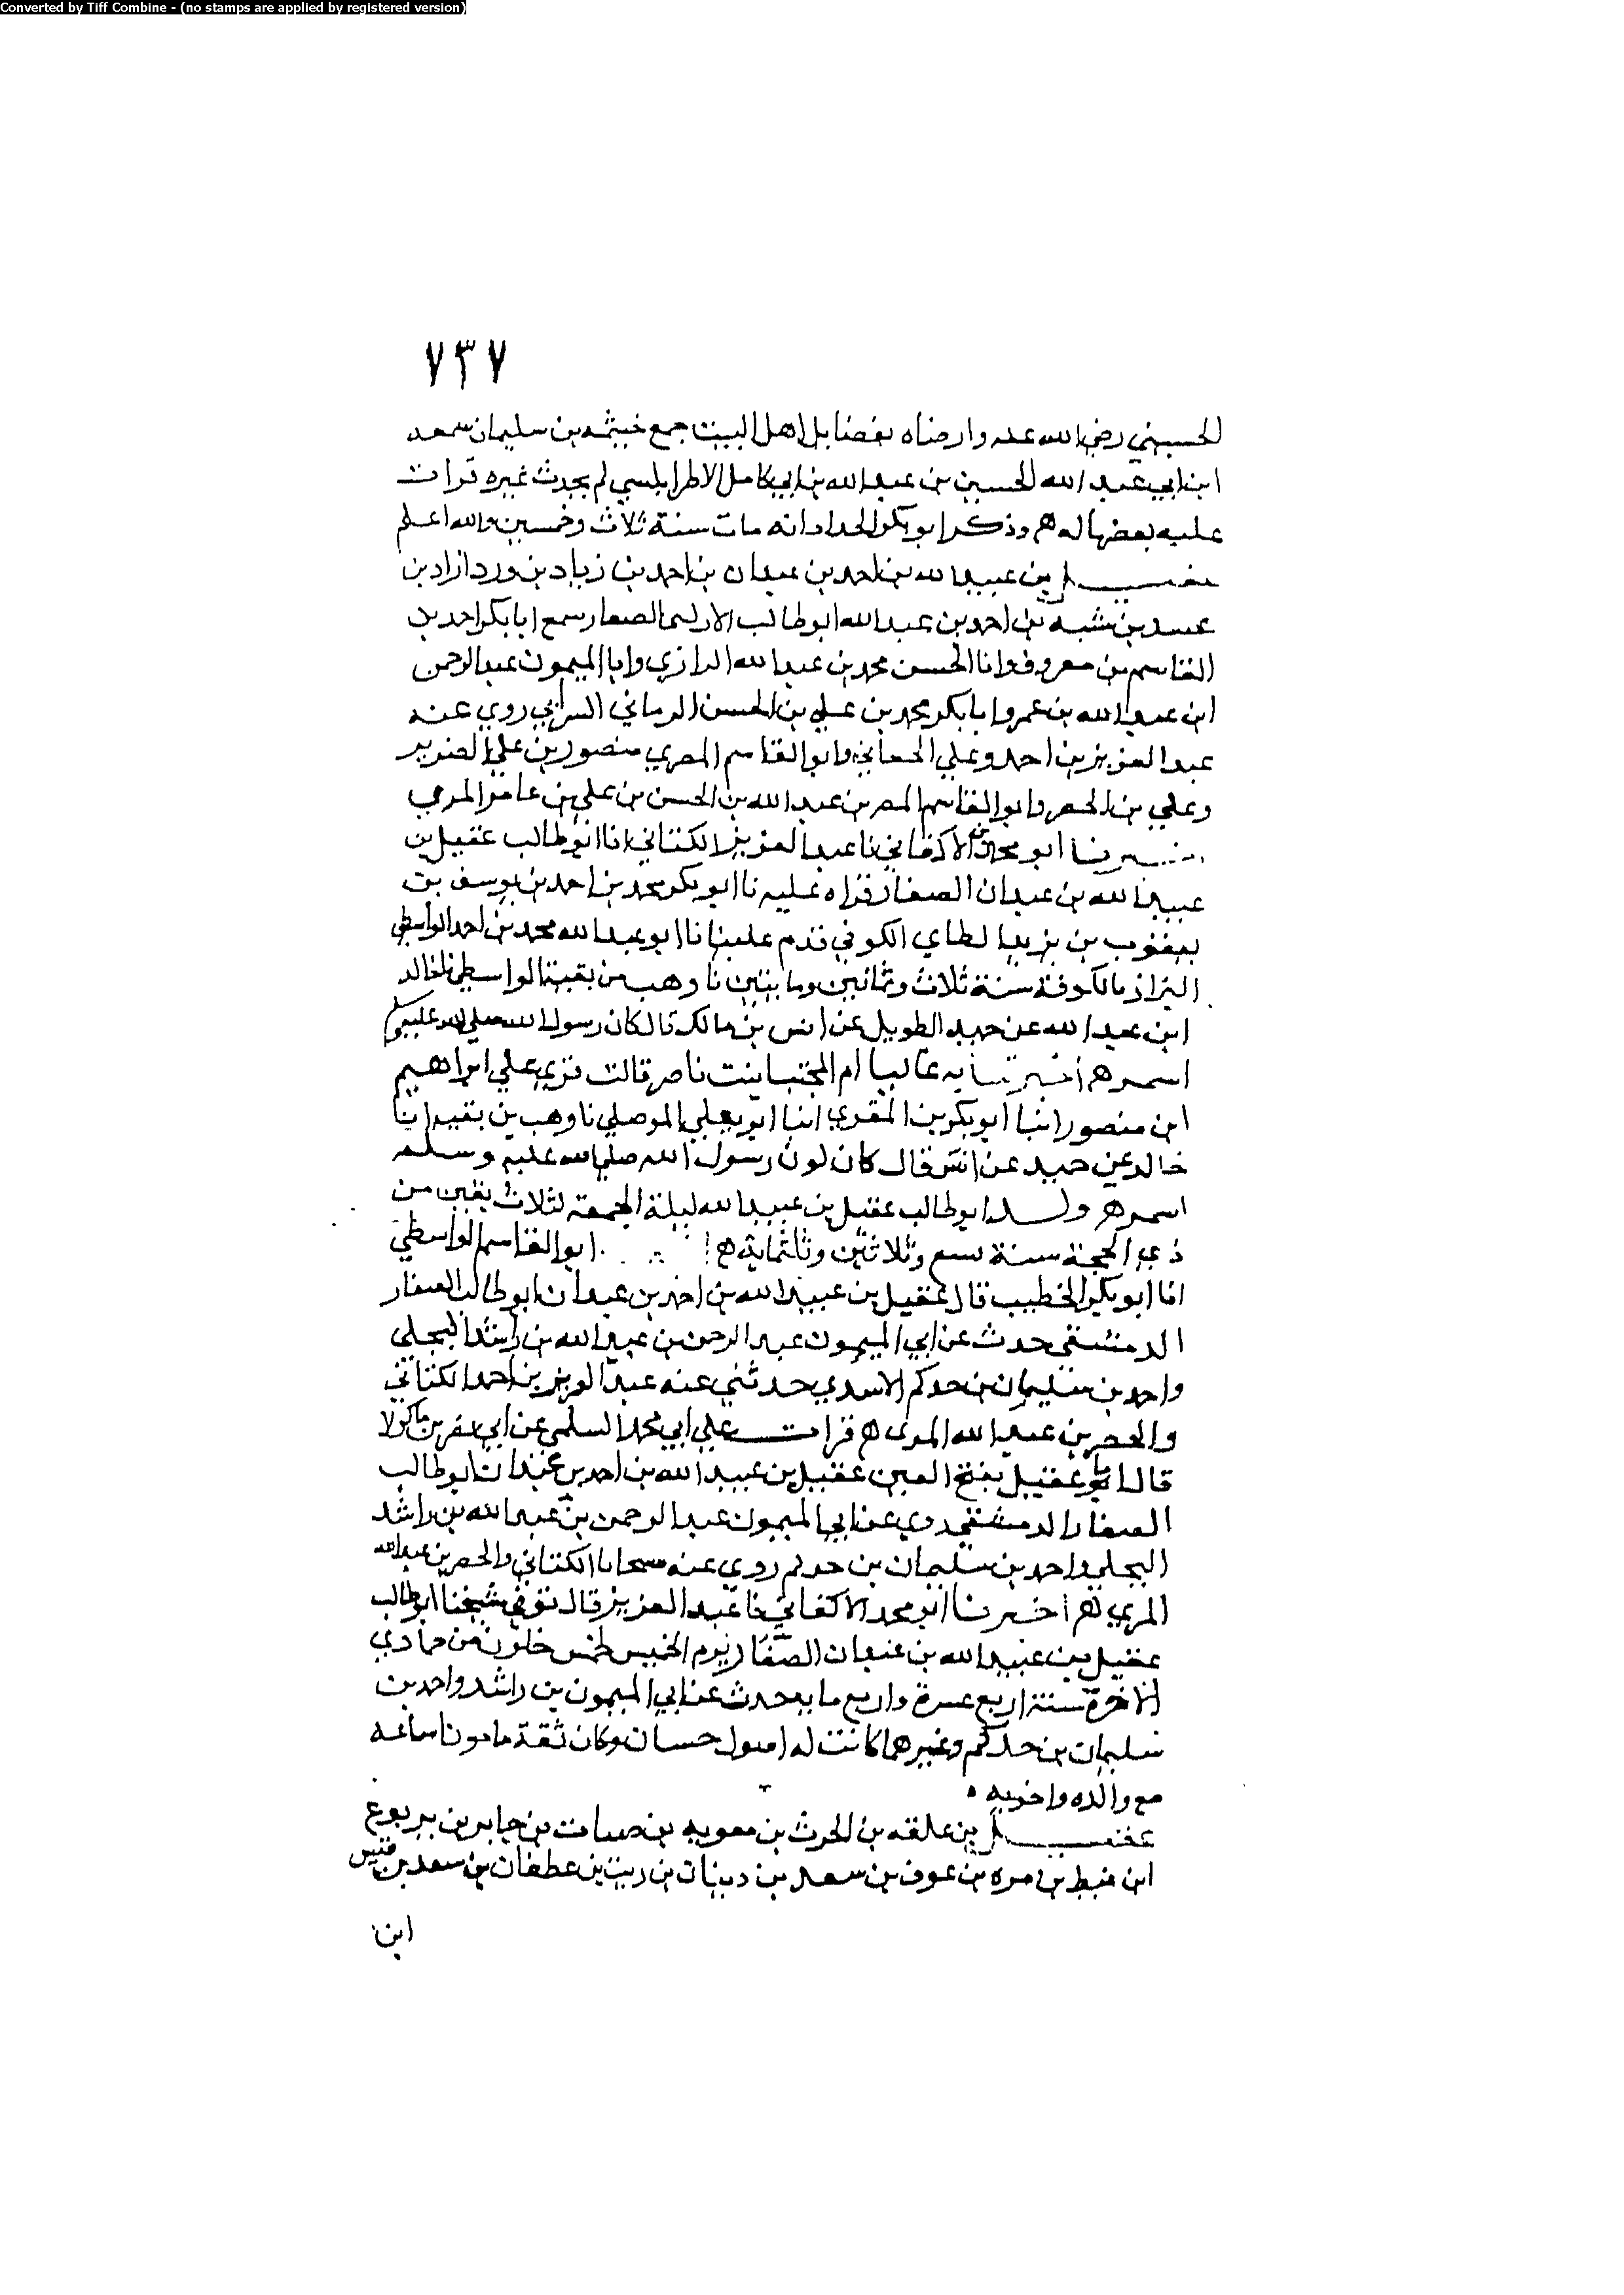 Converted by Tiff Combine - (no stamps are applied by registered version)
٧٣٧
الحسيني رضي الله عنه وارضاه بفضايل اهل البيت جمع خيثمه بن سليمان سمعه
ابن ابي عبد الله الحسين بن عبد الله بن ابي كامل الاطرابلسي لم يحدث غيره قرات
عليه بعضها له هـ وذكر ابو بكر الحداد انه مات سنة ثلاث وخمسين والله اعلم
عقيل بن عبيد الله بن احمد بن عبدان بن احمد بن زياد بن ورد ازاد بن
عبيد بن شبه بن احمد بن عبد الله ابو طالب الصفار سمع ابا بكر احمد بن
القاسم بن معروف وابا الحسن محمد بن عبد الله الرازي وابا الميمون عبد الرحمن
ابن عبد الله بن عمر وابا بكر محمد بن علي بن الحسن الرماني روي عنه
عبد العزيز بن احمد وعلي وابو القاسم المصري منصور بن علي الضرير
وعلي بن الخضر وابو القاسم الخضر بن عبد الله بن الحسن بن علي بن عامر المري
اخبرنا ابو محمد بن الاكفاني نا عبد العزيز الكتاني انا ابو طالب عقيل بن
عبيد الله بن عبدان الصفار قراه عليه نا ابو بكر محمد بن احمد بن يوسف بن
يعقوب بن يزيد الطاي الكوفي قدم علينا نا ابو عبد الله محمد بن احمد الواسطي
البزاز بالكوفة سنة ثلاث وثمانين ومايتين نا وهب بن بقية الواسطي نا خالد
ابن عبد الله عن حميد الطويل عن انس بن مالك قال كان رسول الله صلى الله عليه وسلم
اسمر هـ اخبرتنا به عاليا ام المجتبا بنت ناصر قالت قري علي ابراهيم
ابن منصور انبا ابو بكر بن المقري انبا ابو يعلي الموصلي نا وهب بن بقيه انا
خالد عن حميد عن انس قال كان لون رسول الله صلي الله عليه وسلم
اسمر هـ ولد ابو طالب عقيل بن عبيد الله ليلة الجمعة لثلاث بقين من
ذي الحجة سنة سبع وثلاثين وثلثماية هـ ابو القاسم الواسطي
انا ابو بكر الخطيب قال عقيل بن عبيد الله بن احمد بن عبدان ابو طالب الصفار
الدمشقي حدث عن ابي الميمون عبد الرحمن بن عبد الله بن راشد البجلي
واحمد بن سليمان بن حذلم الاسدي حدثني عنه عبد العزيز بن احمد الكتاني
والخضر بن عبد الله المري هـ قرات علي ابي محمد السلمي عن ابي نصر بن ماكولا
قال اما عقيل بفتح العين عقيل بن عبيد الله بن احمد بن عبدان ابو طالب
الصفار الدمشقي روي عن ابي الميمون عبد الرحمن بن عبد الله بن راشد
البجلي واحمد بن سليمان بن حذلم روي عنه الكتاني والخضر بن عبد الله
المري هـ اخبرنا ابو محمد الاكفاني نا عبد العزيز قال توفي شيخنا ابو طالب
عقيل بن عبيد الله بن عبدان الصفار يوم الخميس لخمس خلون من جمادي
الاخرة سنة اربع عشرة واربع مايه حدث عن ابي الميمون بن راشد واحمد بن
سليمان بن حذلم وغيرهما كانت له اصول حسان وكان ثقة مامونا سماعه
مع والده واخويه
عقيل بن علقه بن الحرث بن معويه بن ضباب بن جابر بن يربوع
ابن غيظ بن مره بن عوف بن سعد بن ذبيان بن ريث بن غطفان بن سعد بن قيس
ابن